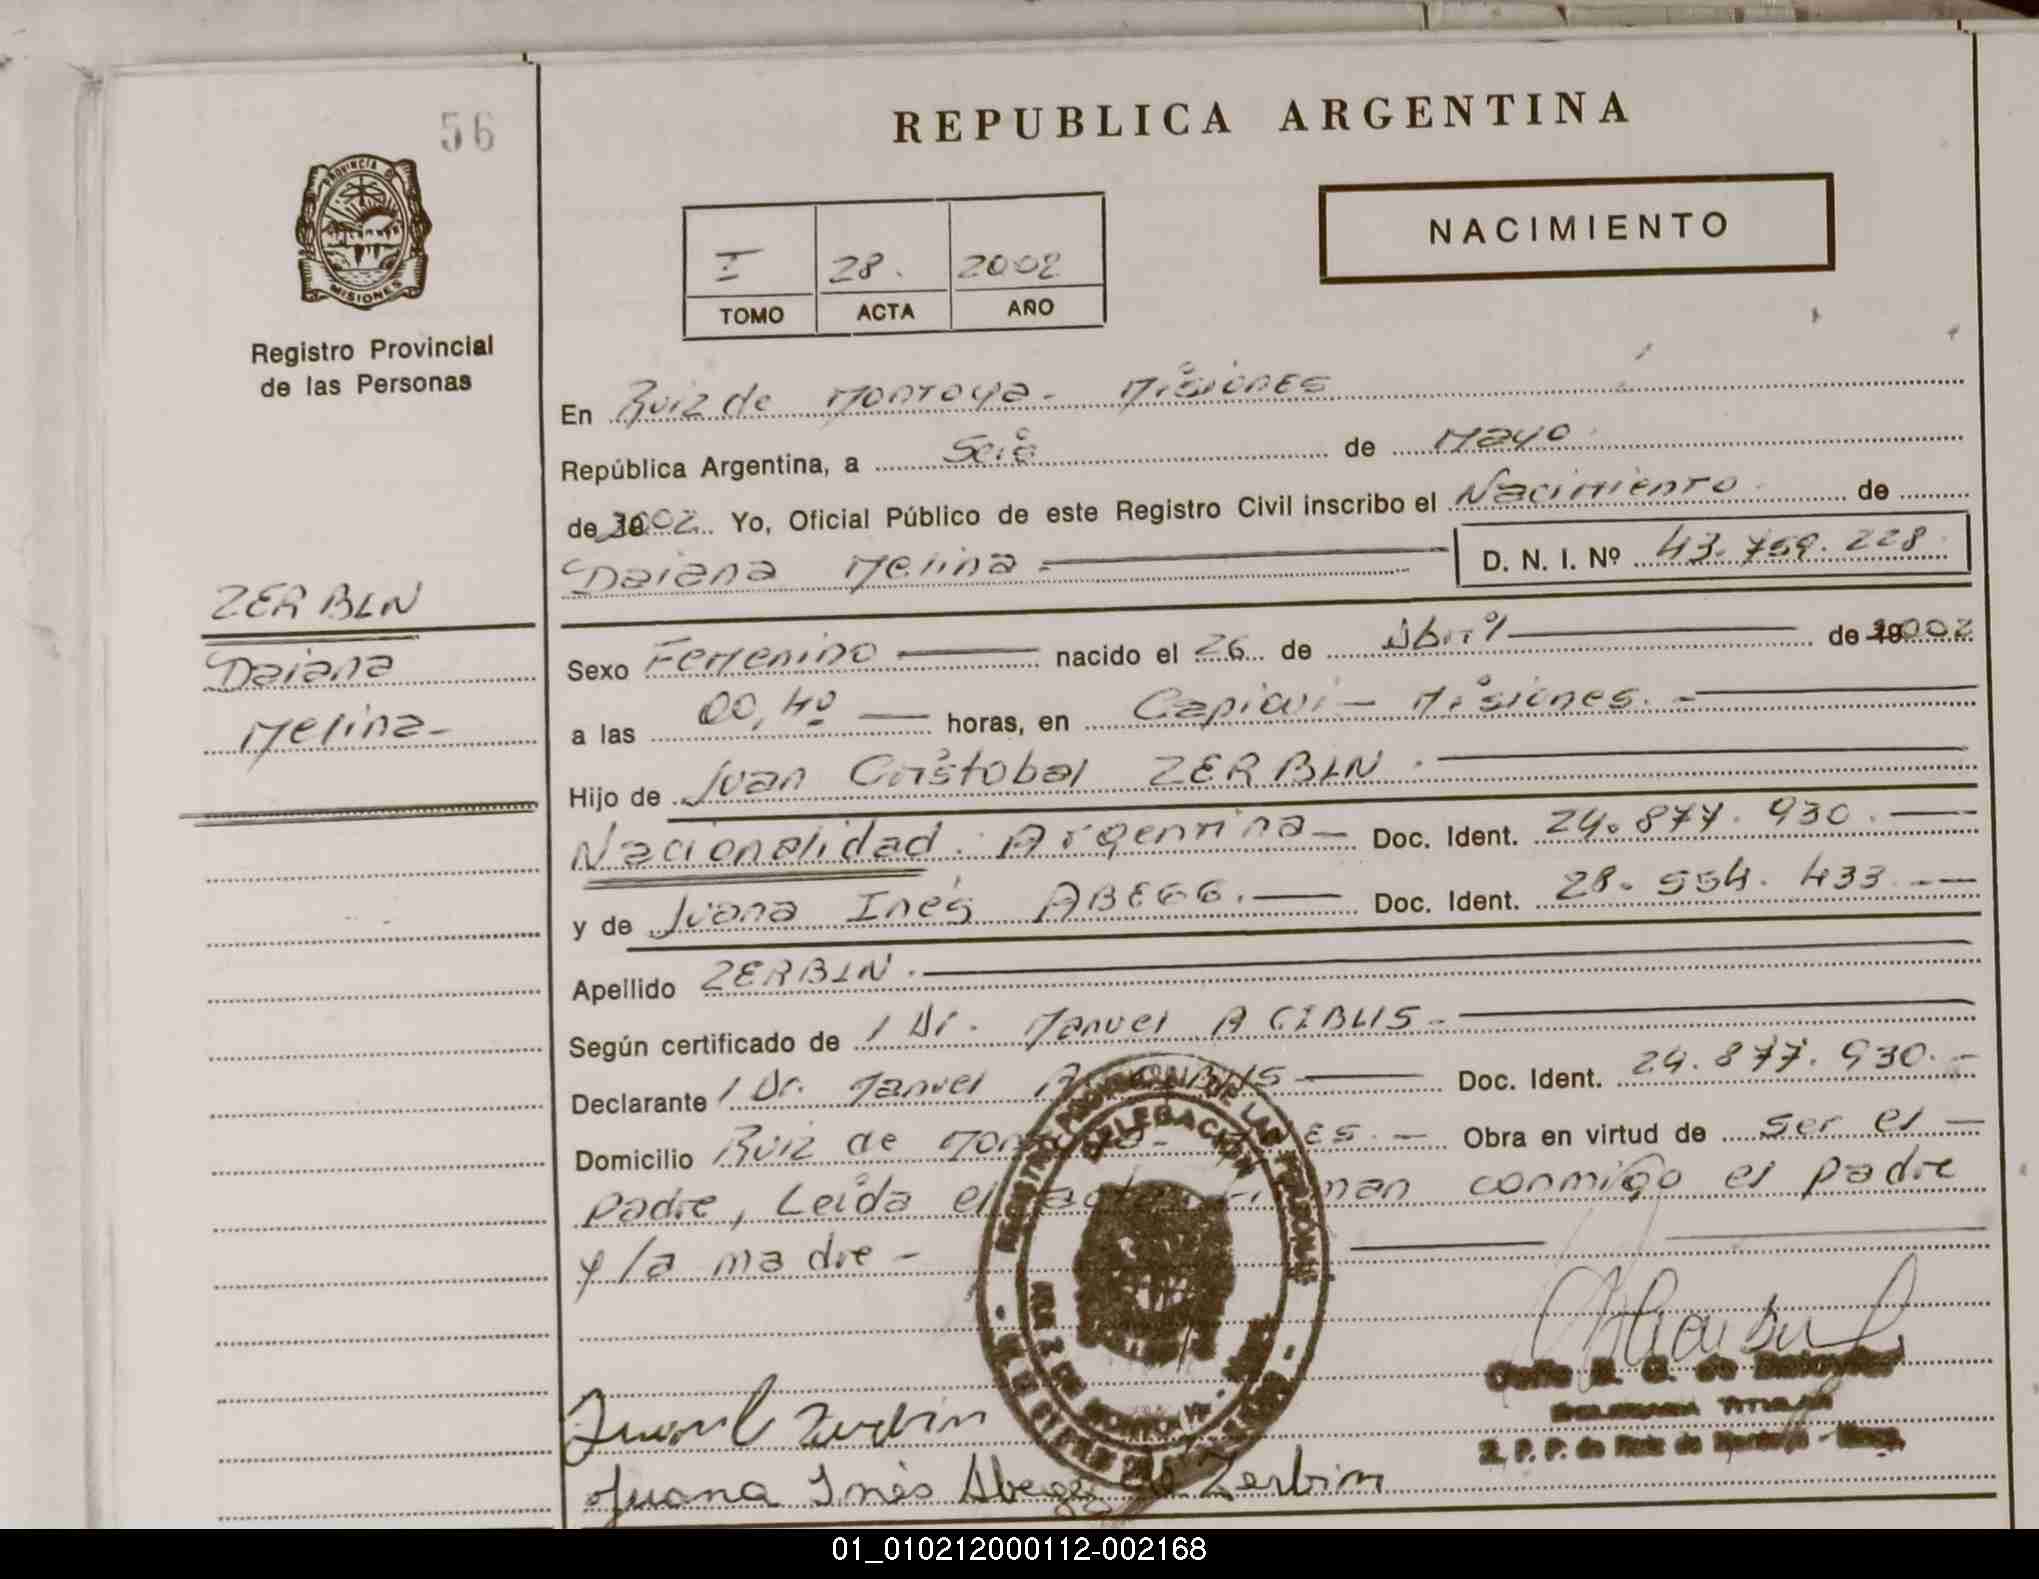 56
REPUBLICA ARGENTINA
PROVINCIA DE
MISIONES
Registro Provincial
de las Personas
NACIMIENTO
I 28. 2002
TOMO ACTA AÑO
En Ruiz de Montoya - Misiones
República Argentina, a Seis de Mayo
de 2002 Yo, Oficial Público de este Registro Civil inscribo el Nacimiento de
Daiana Melina D. N. I. Nº 43.759.228
ZERBIN
Daiana
Melina-
Sexo Femenino nacido el 26 de Abril de 2002
a las 00,40 horas, en Capioví - Misiones. -
Hijo de Juan Cristobal ZERBIN.
Nacionalidad. Argentina - Doc. Ident. 24.877.930.
y de Juana Inés ABEGG. Doc. Ident. 28.554.433
Apellido ZERBIN.
Según certificado de / Dr. Manuel A
Declarante / Dr. Manuel A Doc. Ident. 24.877.930. -
Domicilio Ruiz de Obra en virtud de ser el -
padre, Leida el conmigo el padre
y la madre -
REGISTRO PROVINCIAL DE LAS PERSONAS
DELEGACION
Juan C Zerbin
Juana Inés Abegg de Zerbin
TITULAR
R. P. P. de Ruiz de Montoya - Mnes.
01_010212000112-002168